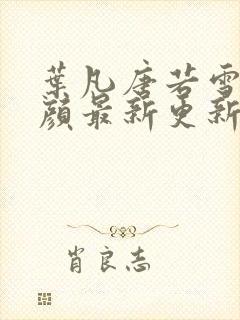 葉凡唐若雪
顏最新更新
肖良志